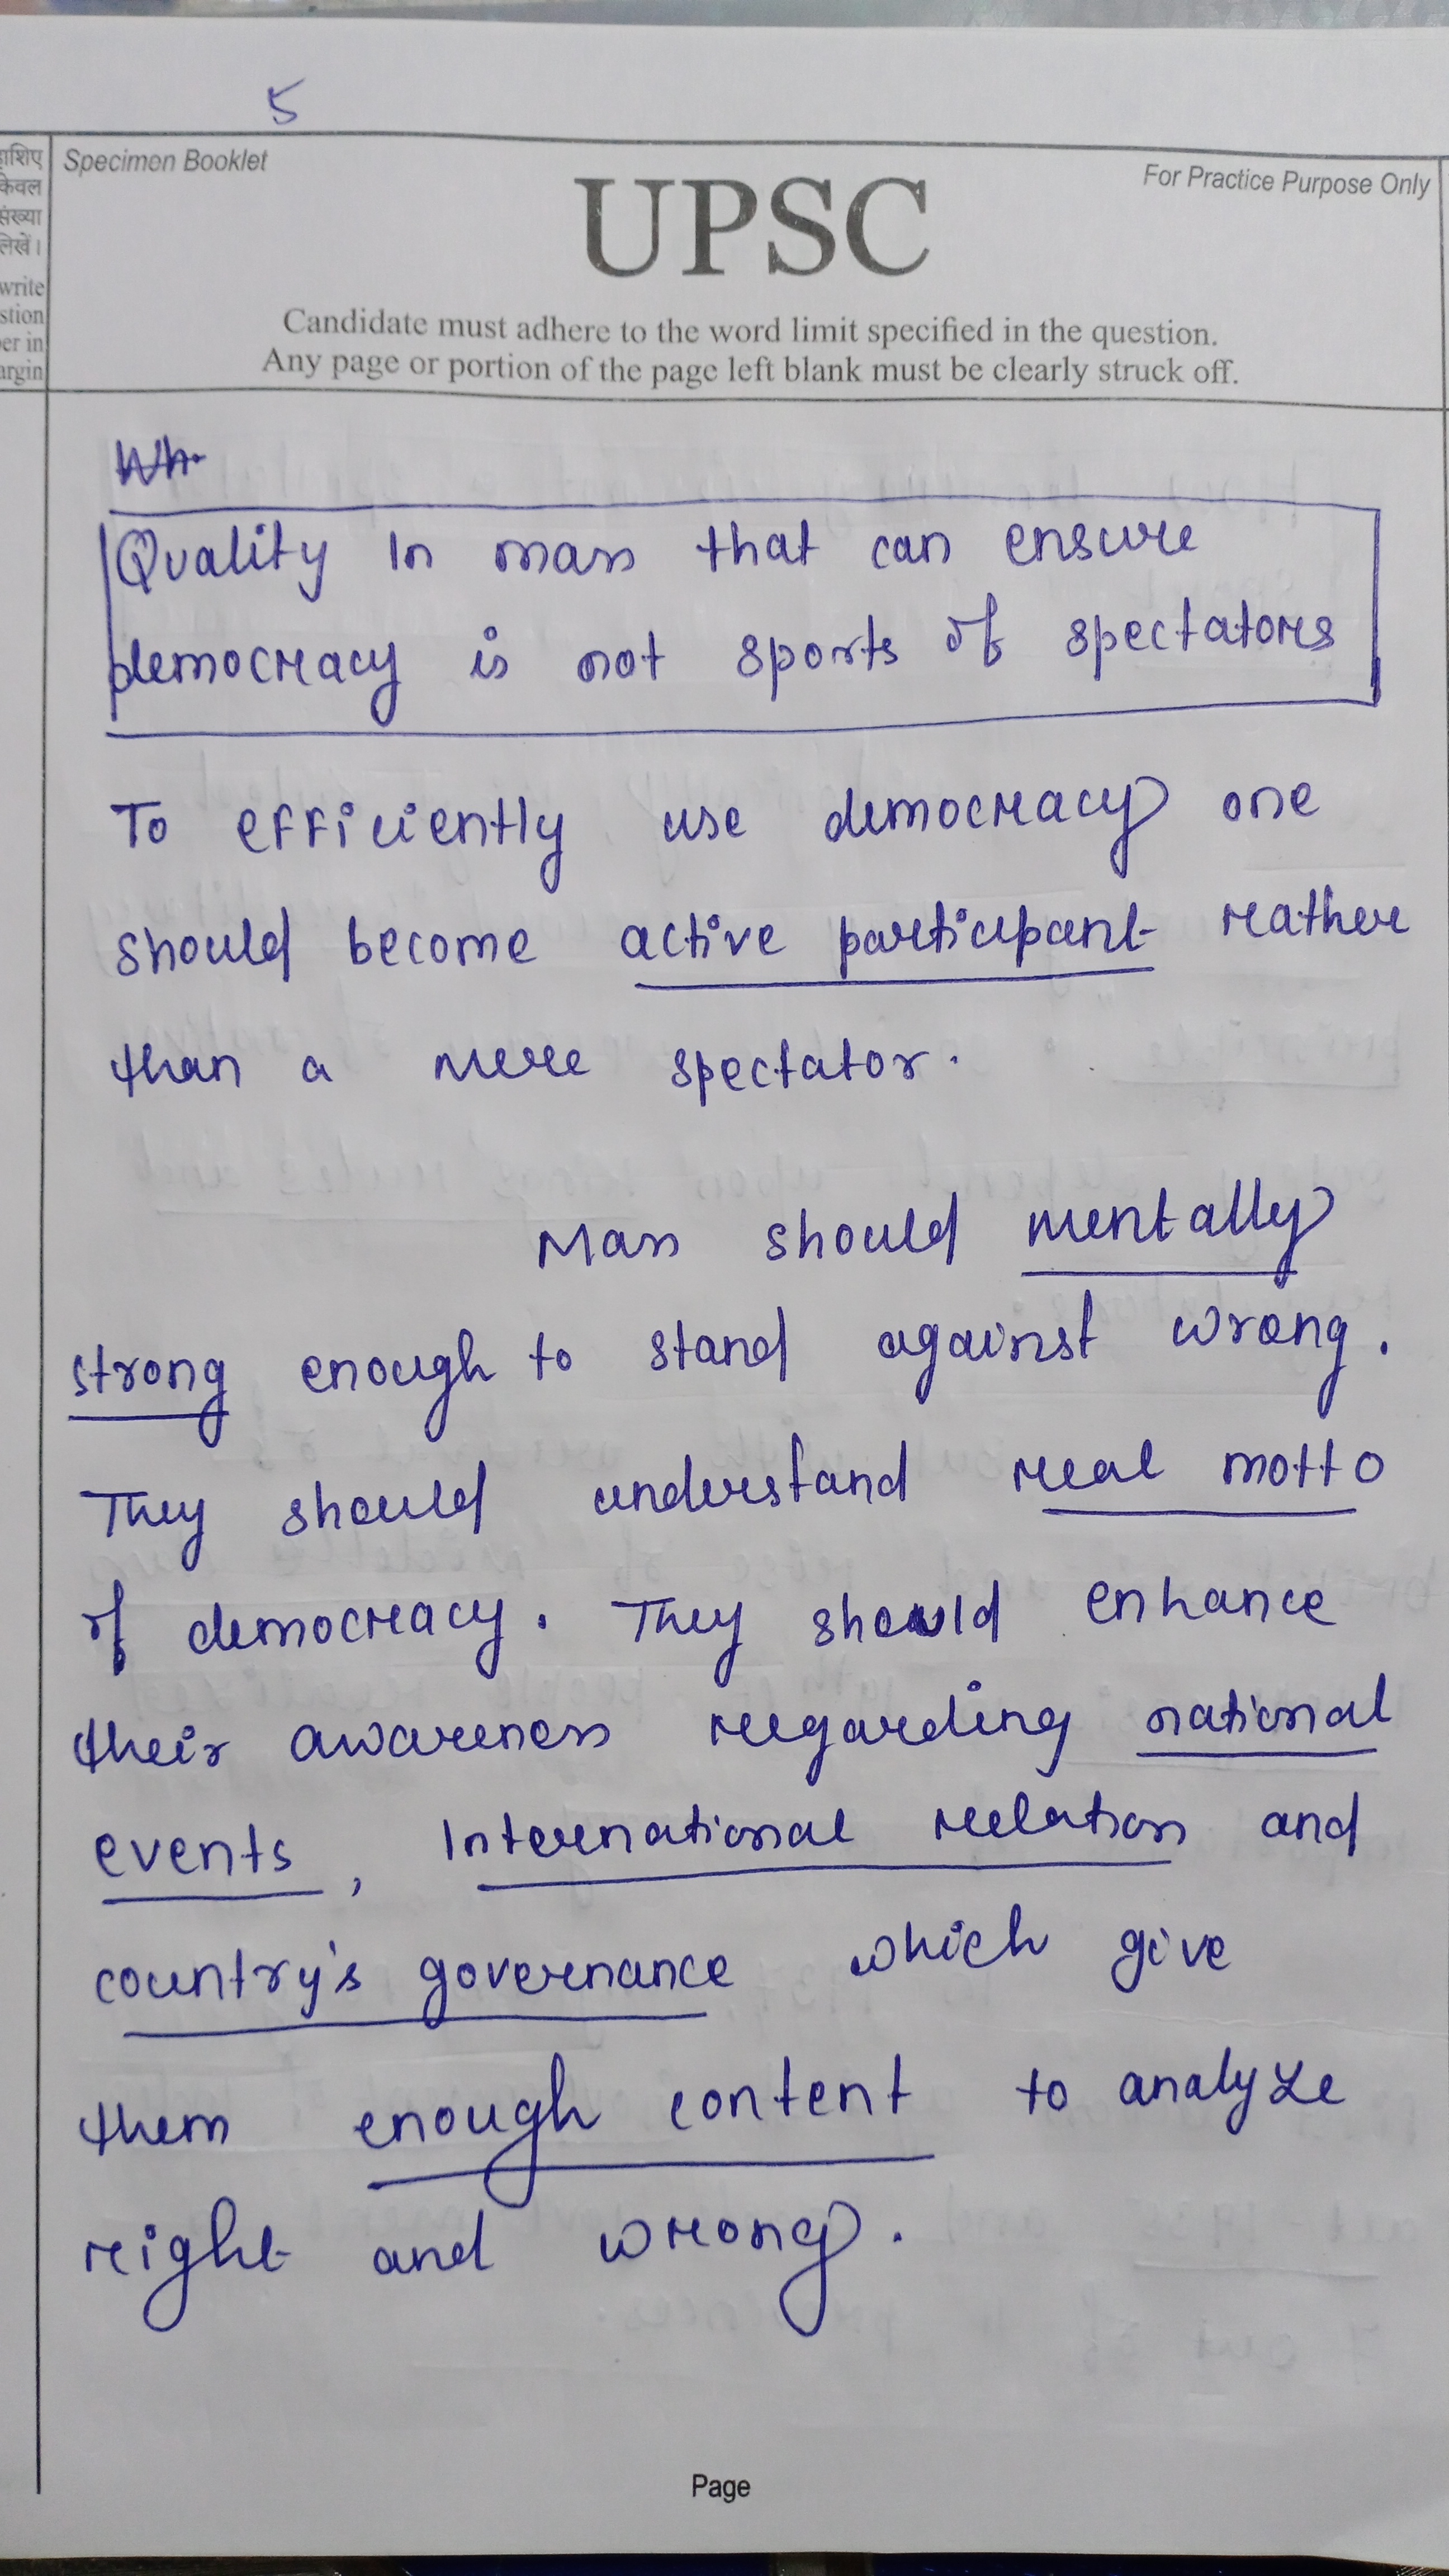 5
हाशिए
केवल
संख्या
लिखें।
write
stion
er in
argin
Specimen Booklet
For Practice Purpose Only
UPSC
Candidate must adhere to the word limit specified in the question.
Any page or portion of the page left blank must be clearly struck off.
Wh.
Quality In mass that can ensure
democracy is not sports of spectators
To efficiently use democracy one
should become active participant rather
than a mere spectator.
Mass should mentally
strong enough to stand against wrong.
They should understand real motto
of democracy. They should enhance
their awareness regarding national
events, International relation and
country's governance which give
them enough content to analyze
right and wrong.
Page